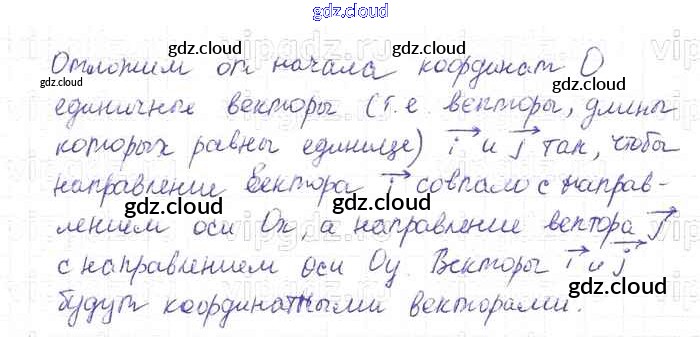 gdz.cloud
Отложим от начала координат O
единичные векторы (т.е. векторы, длины
которых равны единице) i и j так, чтобы
направление вектора i совпало с направ-
лением оси Ox, а направление вектора j
с направлением оси Oy. Векторы i и j
будут координатными векторами.